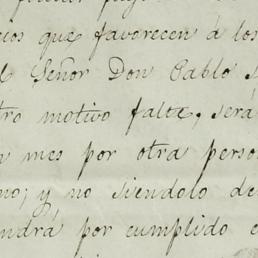 cios que favorecen á los
Señor Don Pablo
tro motivo falte, será
mes por otra perso
no; y no siendolo de
endrá por cumplido e